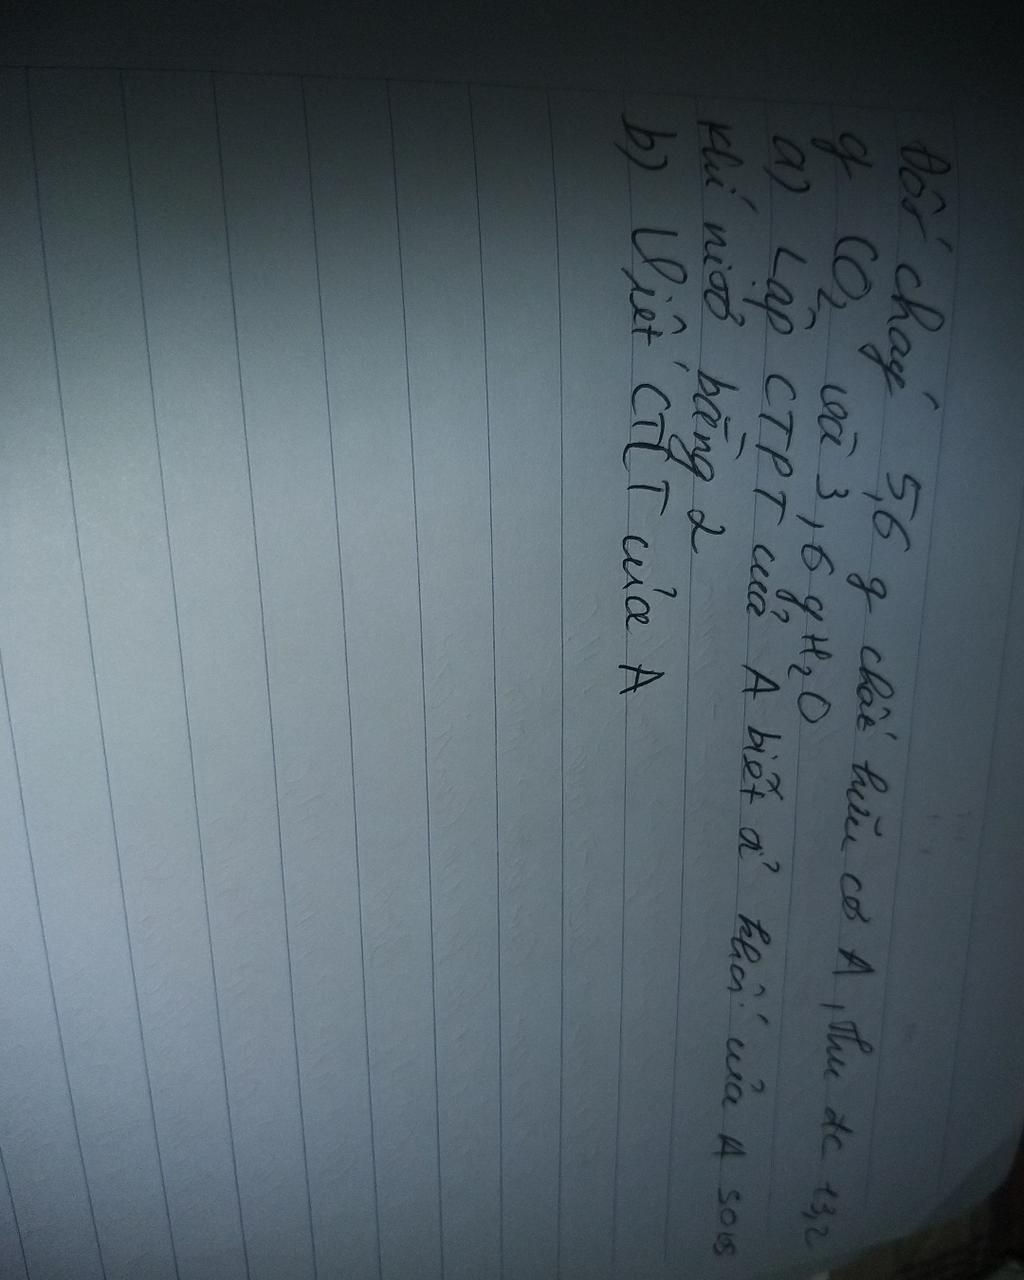 Đốt cháy 5,6 g chất hữu cơ A, thu đc 13,2
g CO2 và 3,6 g H2O
a) Lập CTPT của A biết tỉ khối của A so vs
khí nitơ bằng 2
b) Viết CTCT của A